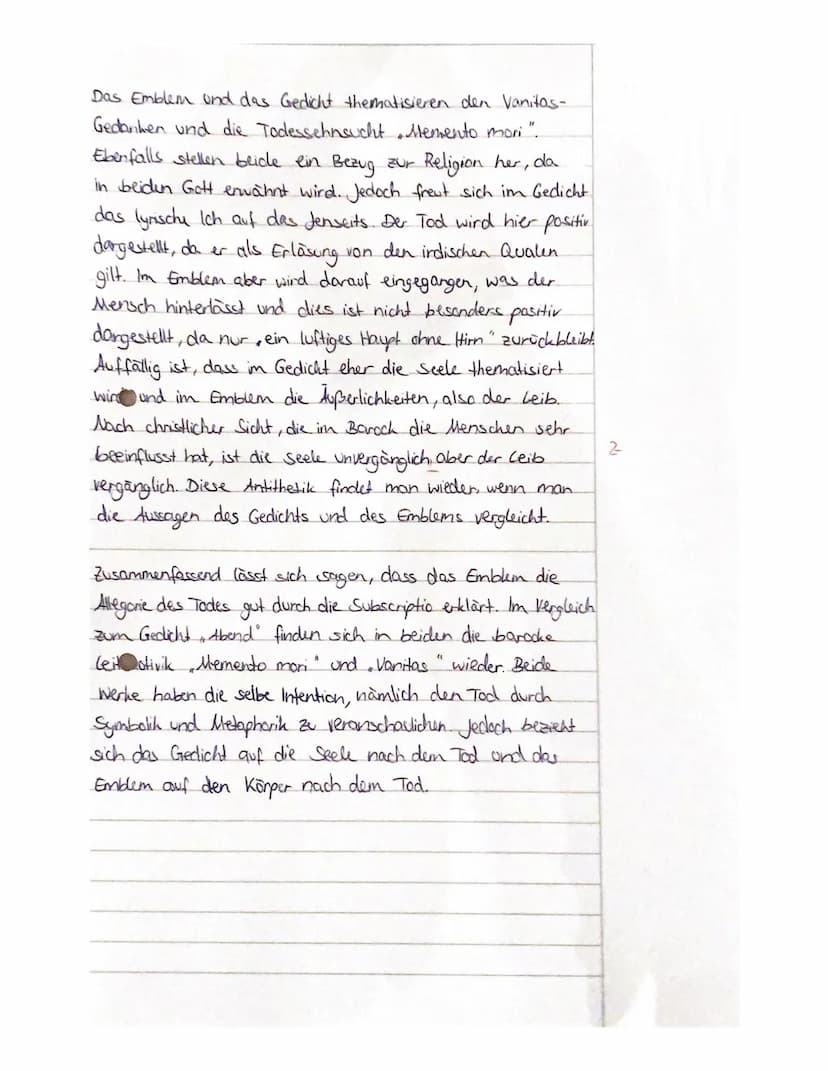 Das Emblem und das Gedicht thematisieren den Vanitas-
Gedanken und die Todessehnsucht „Memento mori“.
Ebenfalls stellen beide ein Bezug zur Religion her, da
in beiden Gott erwähnt wird. Jedoch freut sich im Gedicht
das lyrische Ich auf das Jenseits. Der Tod wird hier positiv
dargestellt, da er als Erlösung von den irdischen Qualen
gilt. Im Emblem aber wird darauf eingegangen, was der
Mensch hinterlässt und dies ist nicht besonders positiv
dargestellt, da nur „ein luftiges Haupt ohne Hirn“ zurückbleibt.
Auffällig ist, dass im Gedicht eher die Seele thematisiert
wird und im Emblem die Äußerlichkeiten, also der Leib.
Nach christlicher Sicht, die im Barock die Menschen sehr
beeinflusst hat, ist die Seele unvergänglich, aber der Leib
vergänglich. Diese Antithetik findet man wieder, wenn man
die Aussagen des Gedichts und des Emblems vergleicht.
Zusammenfassend lässt sich sagen, dass das Emblem die
Allegorie des Todes gut durch die Subscriptio erklärt. Im Vergleich
zum Gedicht „Abend“ finden sich in beiden die barocke
Leitmotivik „Memento mori“ und „Vanitas“ wieder. Beide
Werke haben die selbe Intention, nämlich den Tod durch
Symbolik und Metaphorik zu veranschaulichen. Jedoch bezieht
sich das Gedicht auf die Seele nach dem Tod und das
Emblem auf den Körper nach dem Tod.